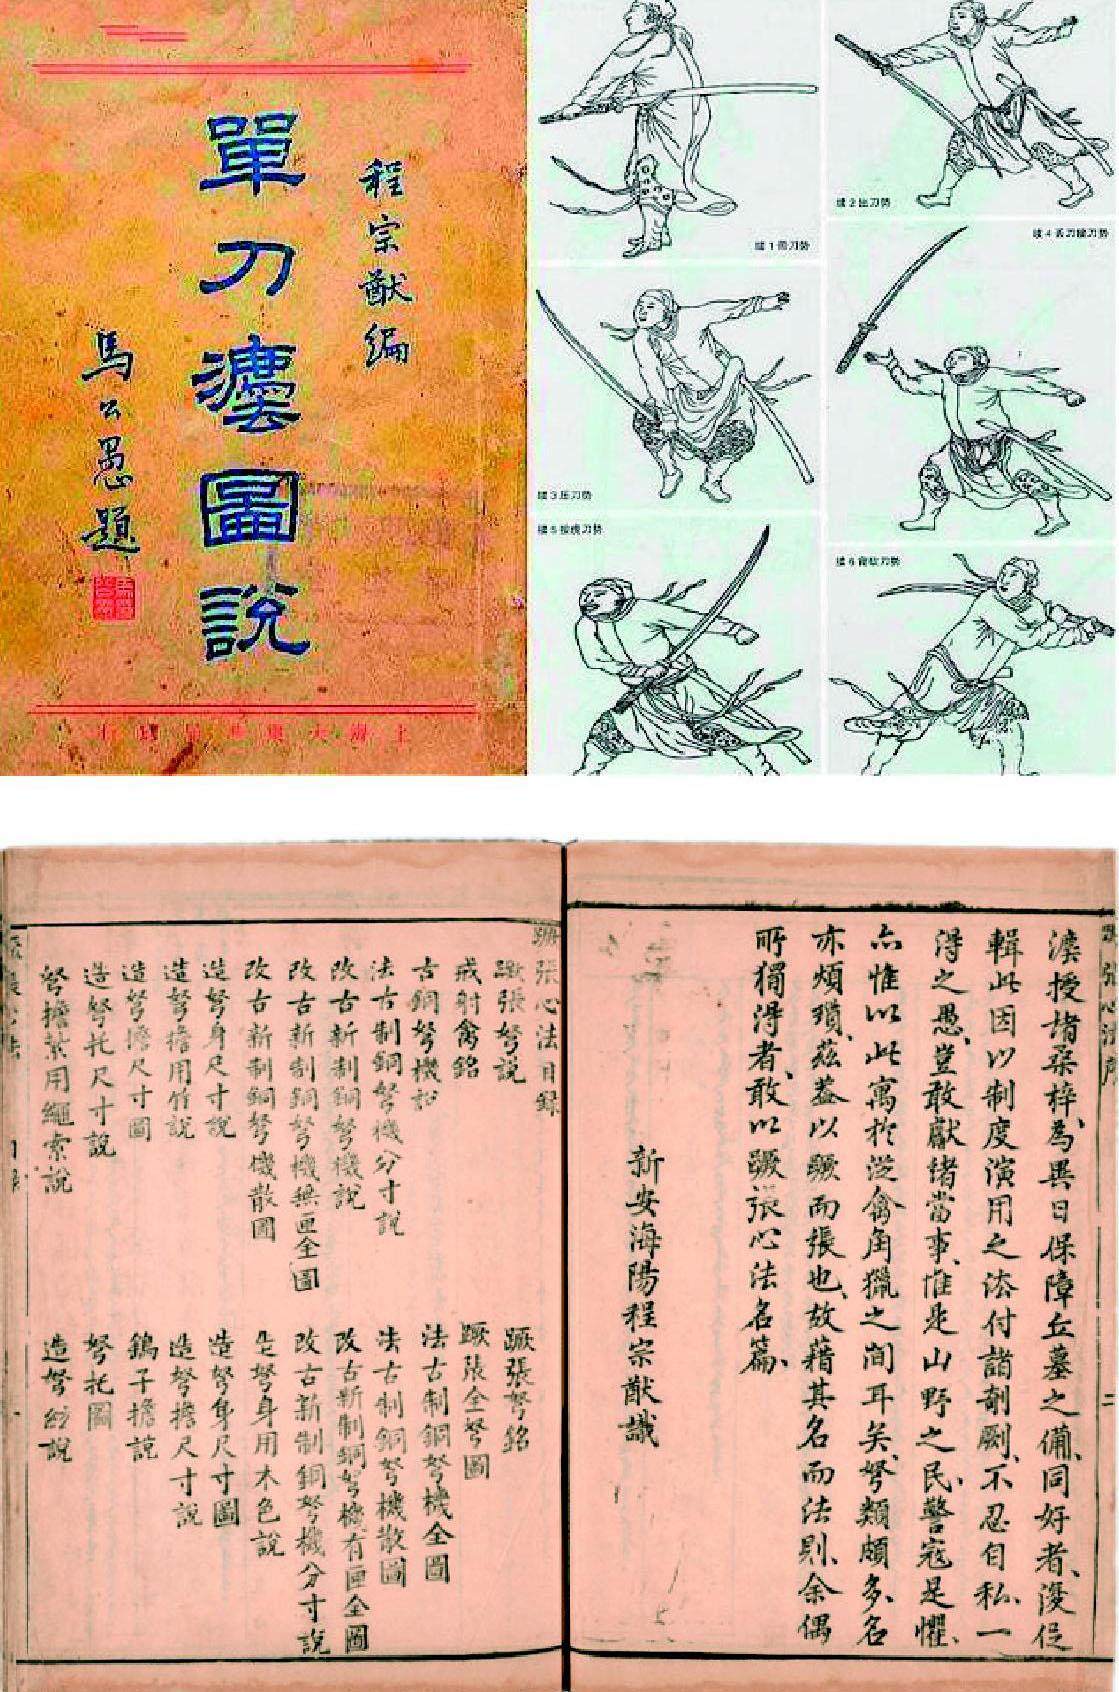 程宗猷編
單刀灋圖說
馬公愚題
上海大東書局印行
续2出刀势
续3压刀势
续4丢刀接刀势
续5按虎刀势
续6背砍刀势
授諸棗梓、為異日保障丘墓之備、同好者、復促
輯此因以制度演用之法付諸剞劂、不忍自私、一
得之愚、豈敢獻諸當事、惟是山野之民、警寇是懼、
亦惟以此寓於從禽角獵之間耳矣、弩類頗多、名
亦煩瑣、茲蓋以蹶而張也、故藉其名而法則、余偶
所獨得者、敢以蹶張心法名篇、
新安海陽程宗猷識
蹶張心法目錄
蹶張弩說 蹶張弩銘
戒射禽銘 蹶張全弩圖
古銅弩機 法古制銅弩機全圖
法古制銅弩機分寸說 法古制銅弩機散圖
改古新制銅弩機說 改古新制銅弩機有匣全圖
改古新制銅弩機無匣全圖 改古新制銅弩機分寸說
改古新制銅弩機散圖 造弩身用木色說
造弩身尺寸說 造弩身尺寸圖
造弩擔用竹說 造弩擔尺寸說
造弩擔尺寸圖 鷂子擔說
造弩托尺寸說 弩托圖
弩擔紮用繩索說 造弩絃說